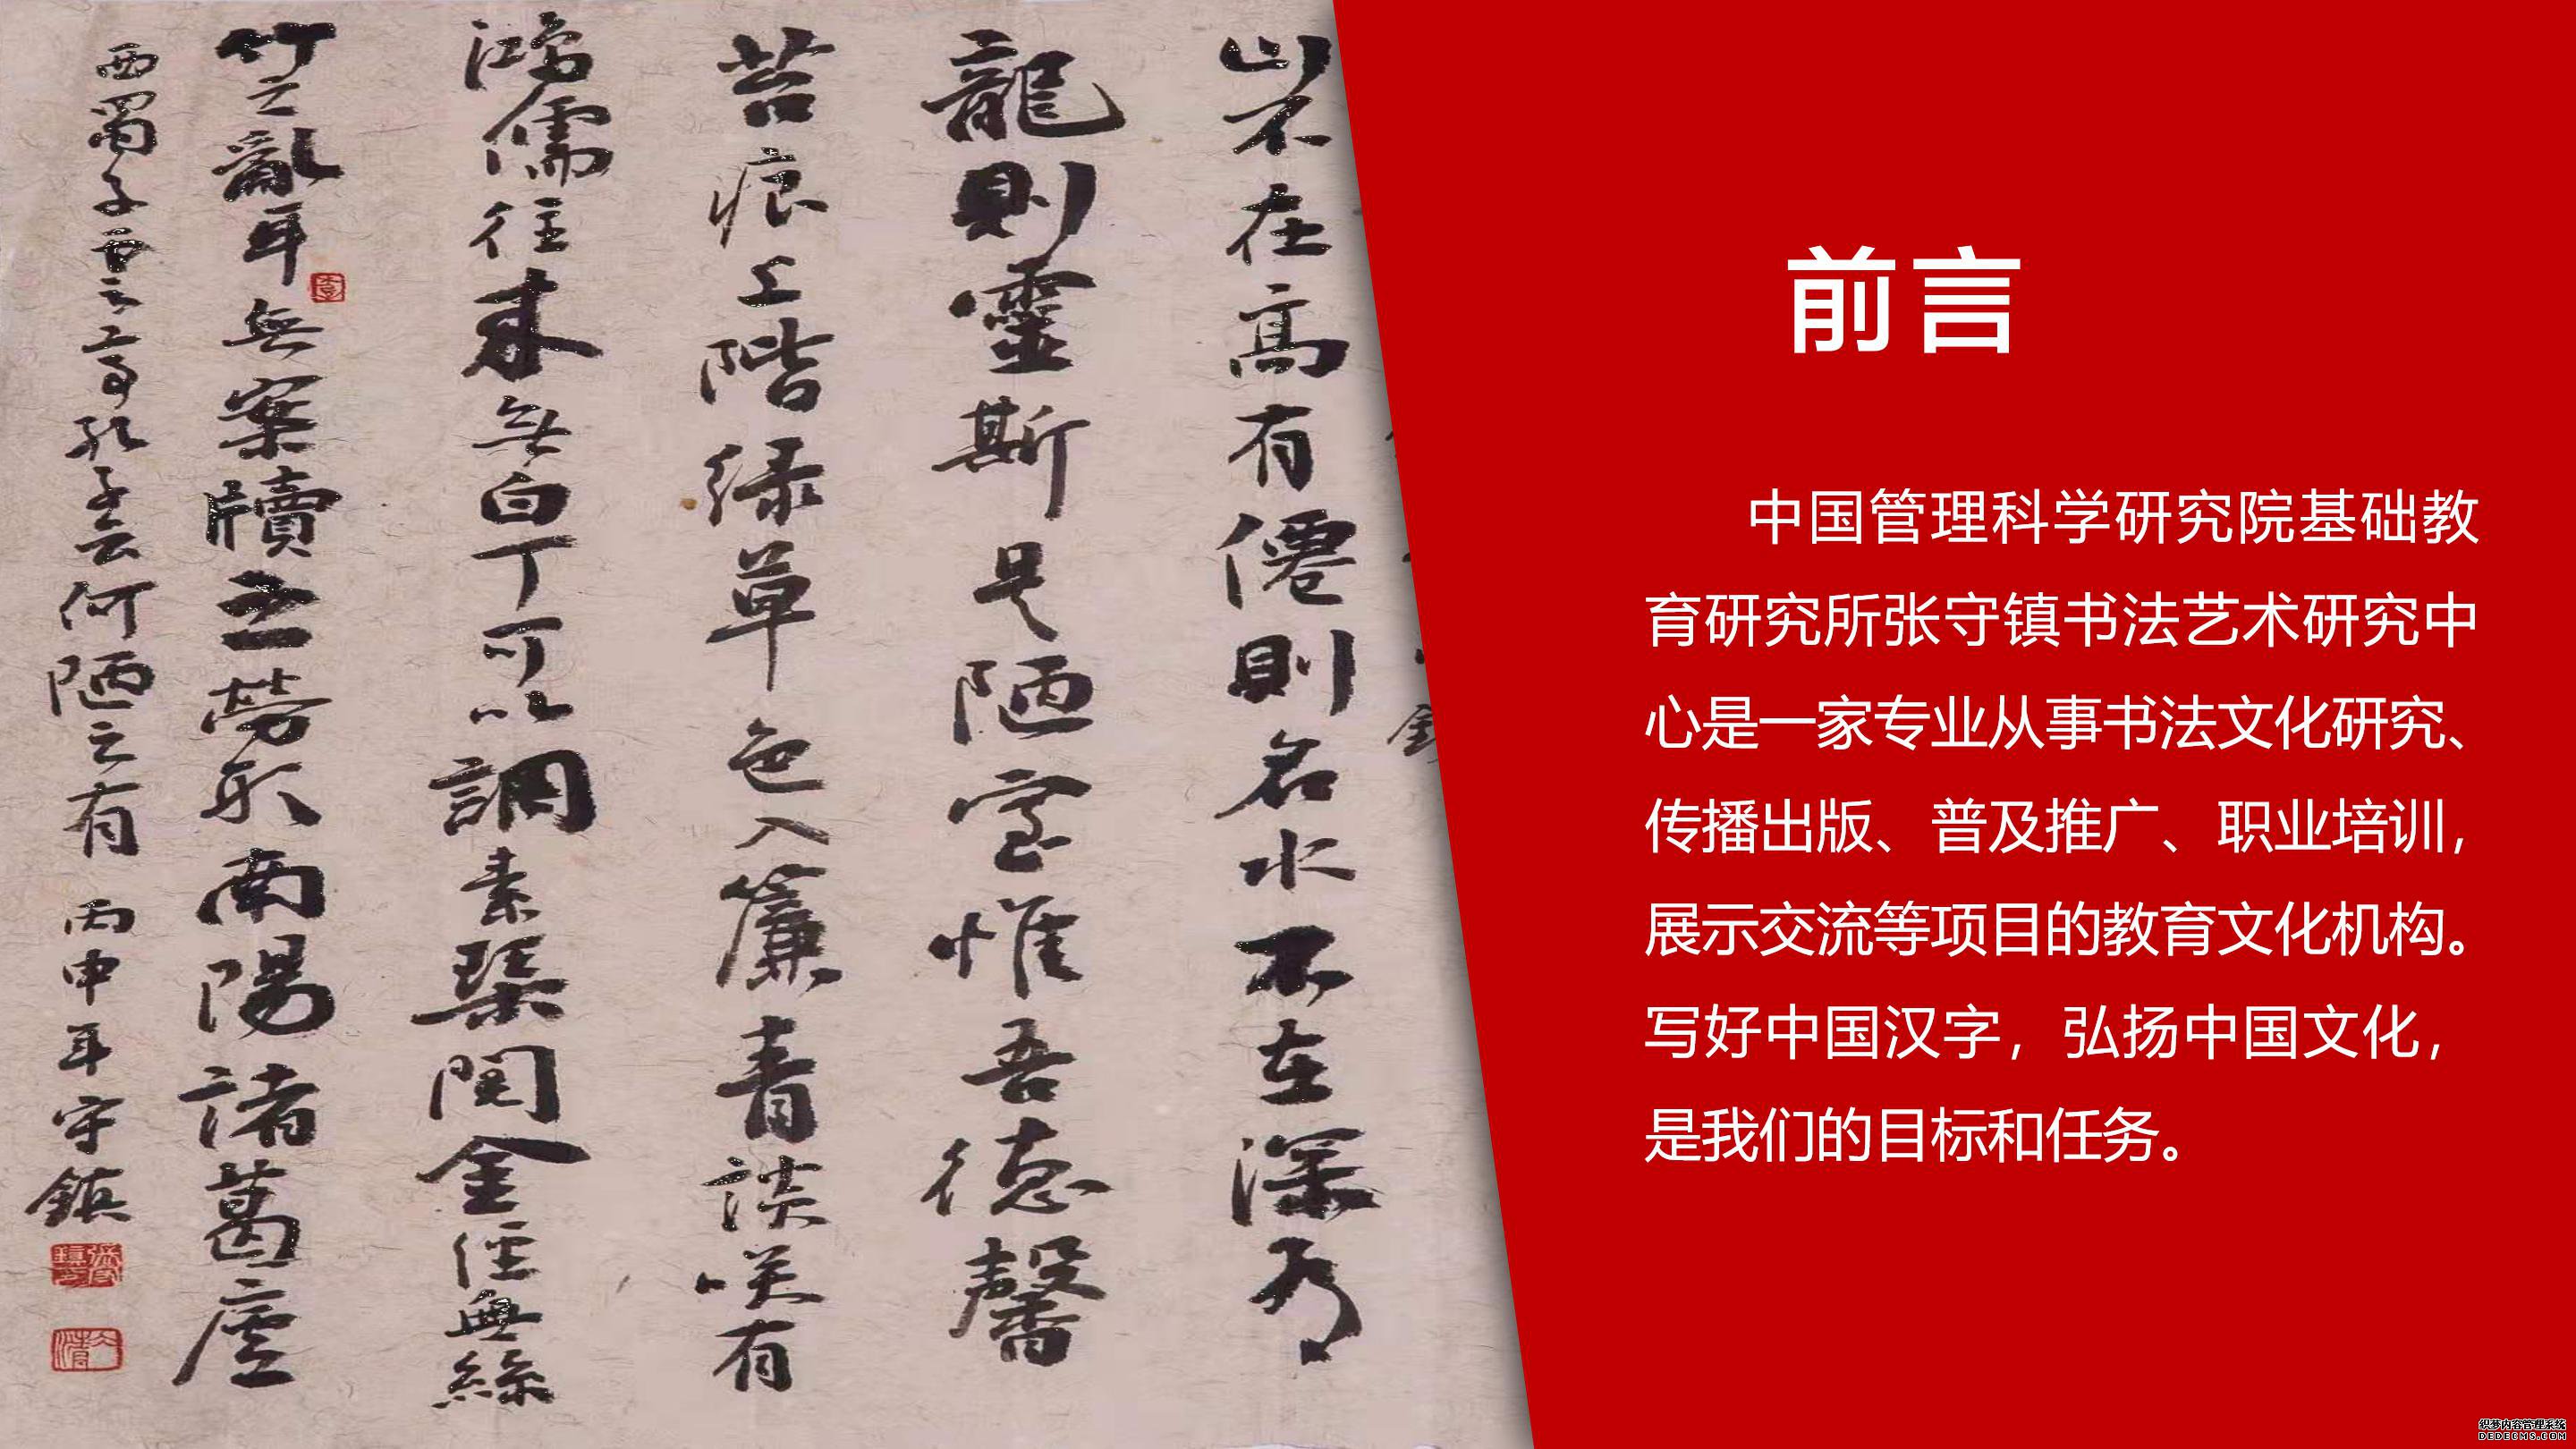 山不在高有僊則名水不在深有
龍則靈斯是陋室惟吾德馨
苔痕上階緑草色入簾青談咲有
鴻儒往来無白丁可以調素琴閱金經無絲
竹之亂耳無案牘之勞形南陽諸葛廬
西蜀子雲之亭孔子云何陋之有 丙申年守鎮
前言
中国管理科学研究院基础教
育研究所张守镇书法艺术研究中
心是一家专业从事书法文化研究、
传播出版、普及推广、职业培训，
展示交流等项目的教育文化机构。
写好中国汉字，弘扬中国文化，
是我们的目标和任务。
织梦内容管理系统
DEDECMS.COM